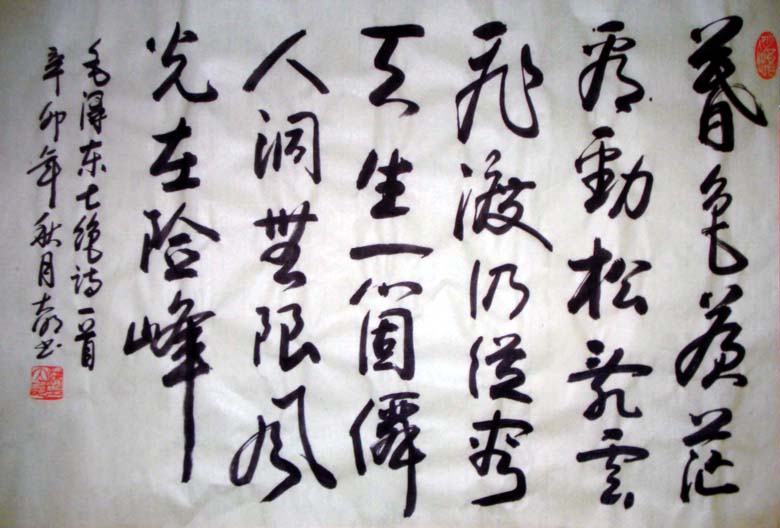 暮色蒼茫
看勁松亂雲
飛渡仍從容
天生一個僊
人洞無限風
光在险峰
毛澤东七絕诗一首
辛卯年秋月书